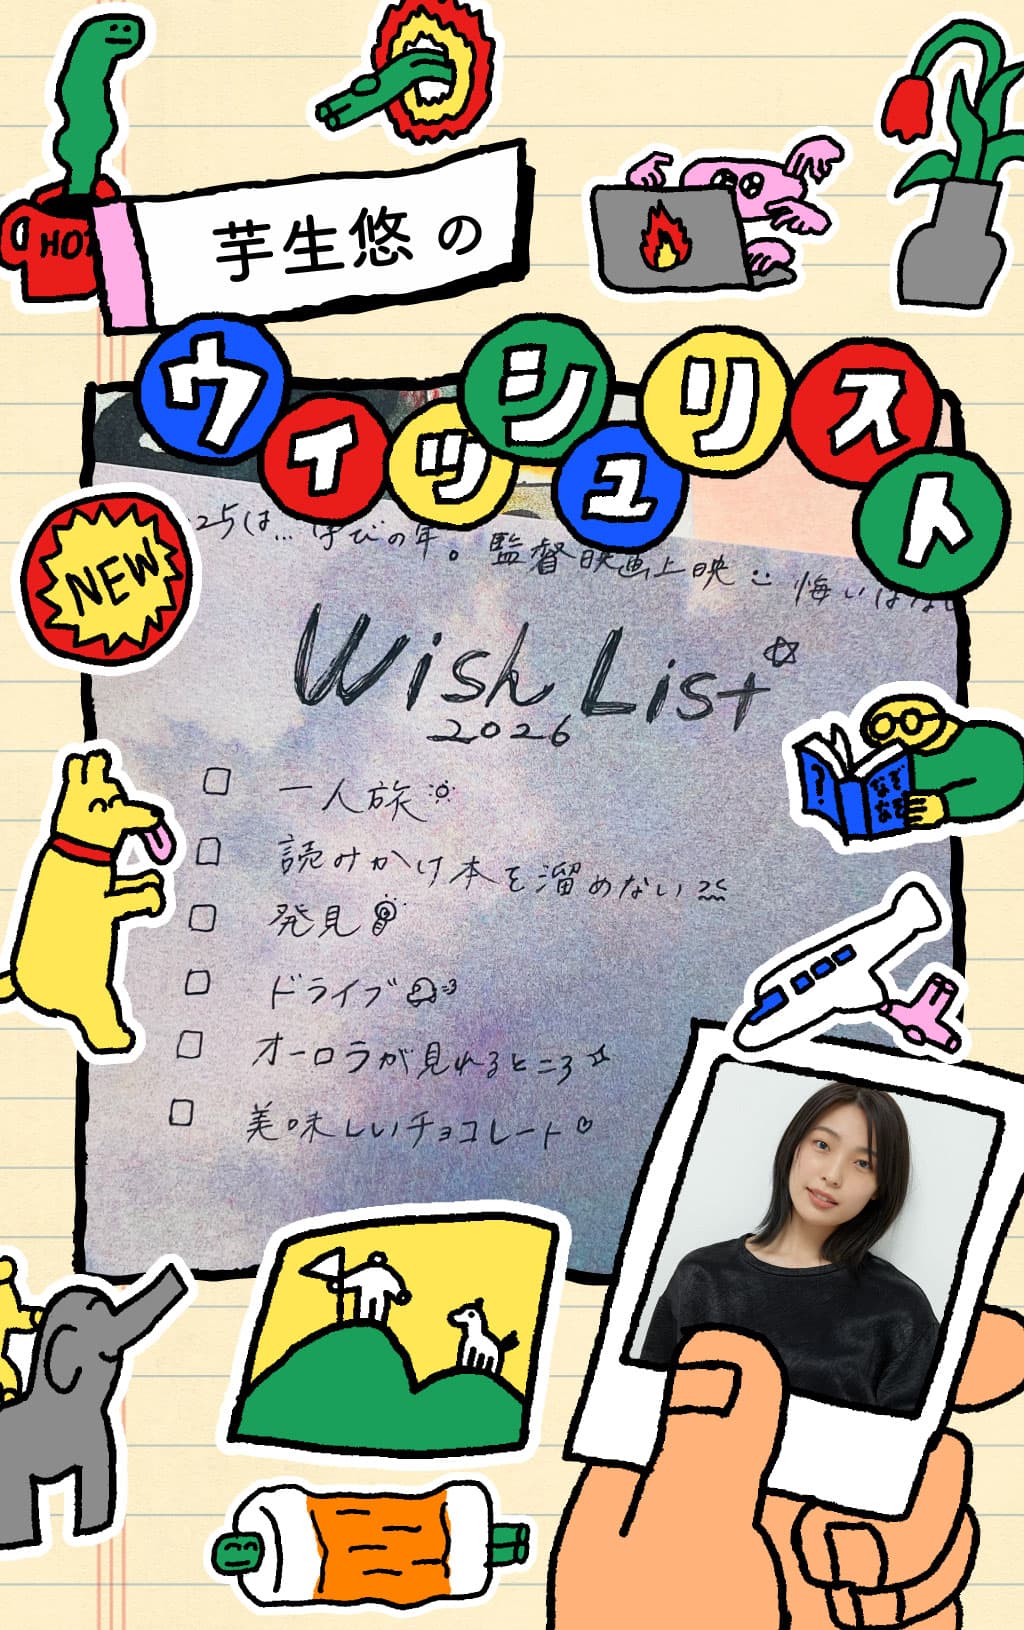 HOT
芋生悠の
ウィッシュリスト
NEW
25は…学びの年。監督映画上映 悔いはない
Wish List
2026
一人旅
読みかけ本を溜めない
発見
ドライブ
オーロラが見れるところ
美味しいチョコレート
?
なぞ
なぞ